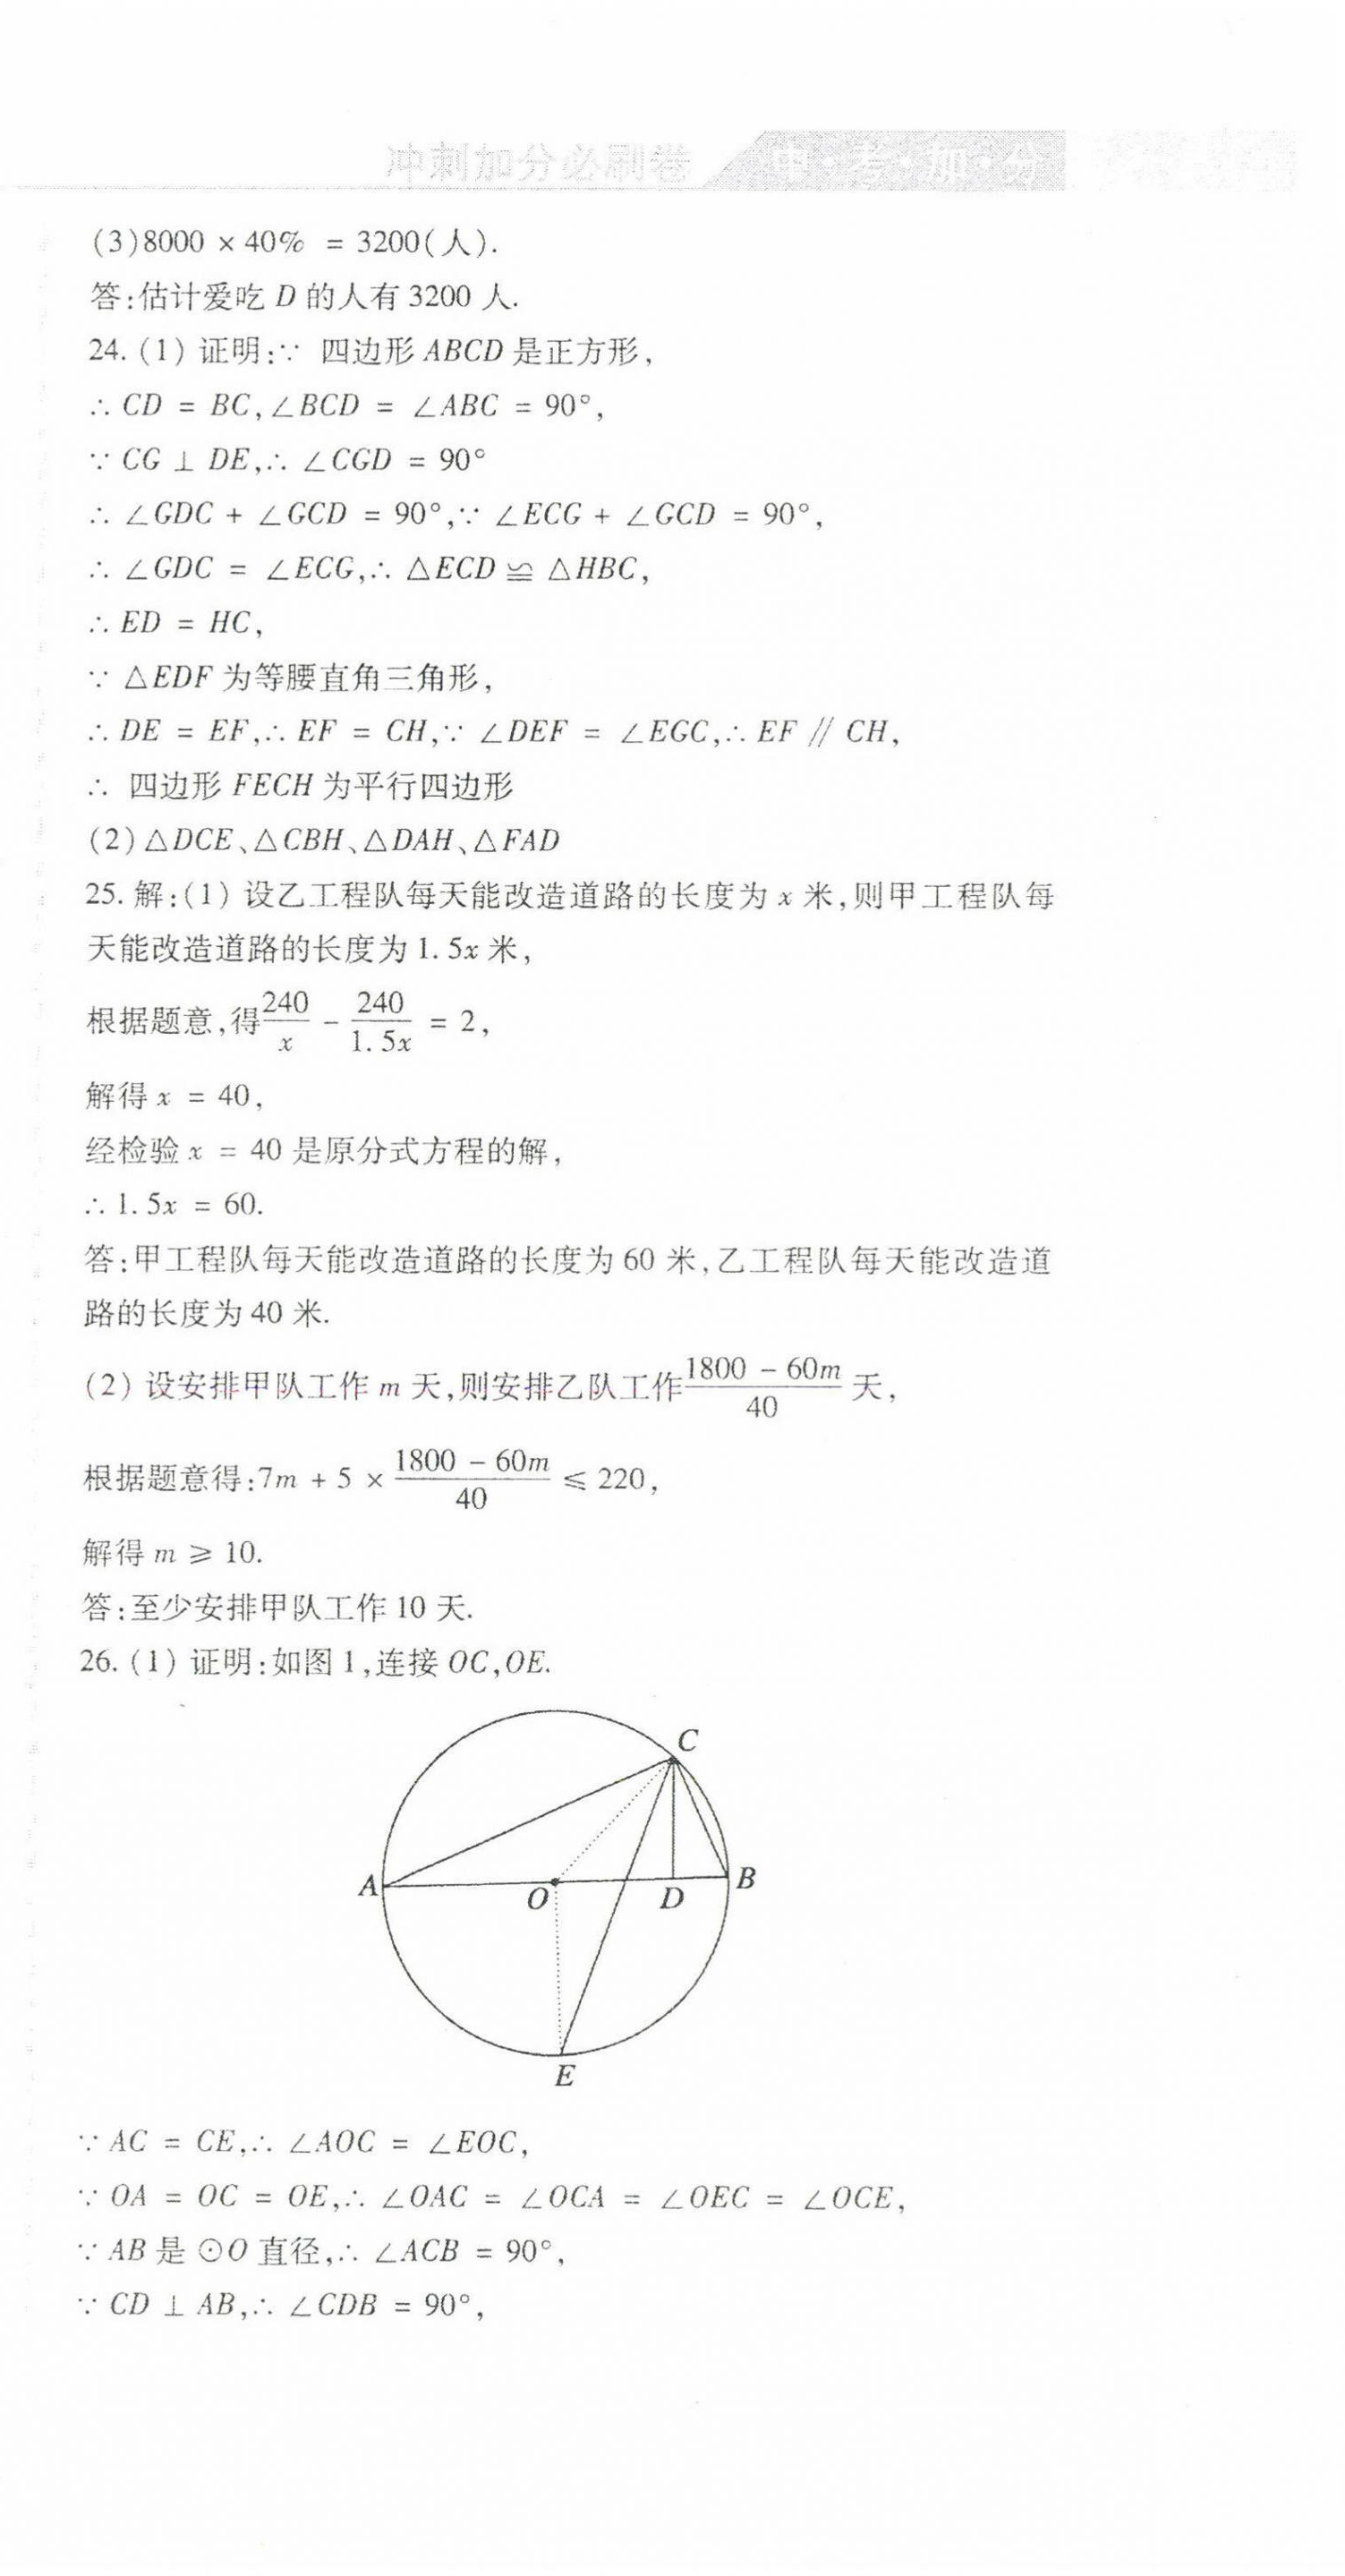 冲刺加分必刷卷 中·考·加·分
(3)8000 × 40% = 3200(人).
答:估计爱吃 D 的人有 3200 人.
24. (1) 证明:∵ 四边形 ABCD 是正方形,
∴ CD = BC,∠BCD = ∠ABC = 90°,
∵ CG ⊥ DE,∴ ∠CGD = 90°
∴ ∠GDC + ∠GCD = 90°,∵ ∠ECG + ∠GCD = 90°,
∴ ∠GDC = ∠ECG,∴ △ECD ≌ △HBC,
∴ ED = HC,
∵ △EDF 为等腰直角三角形,
∴ DE = EF,∴ EF = CH,∵ ∠DEF = ∠EGC,∴ EF ∥ CH,
∴ 四边形 FECH 为平行四边形
(2) △DCE、△CBH、△DAH、△FAD
25. 解:(1) 设乙工程队每天能改造道路的长度为 x 米,则甲工程队每
天能改造道路的长度为 1.5x 米,
根据题意,得 240/x - 240/1.5x = 2,
解得 x = 40,
经检验 x = 40 是原分式方程的解,
∴ 1.5x = 60.
答:甲工程队每天能改造道路的长度为 60 米,乙工程队每天能改造道
路的长度为 40 米.
(2) 设安排甲队工作 m 天,则安排乙队工作 (1800 - 60m)/40 天,
根据题意得:7m + 5 × (1800 - 60m)/40 ≤ 220,
解得 m ≥ 10.
答:至少安排甲队工作 10 天.
26. (1) 证明:如图 1,连接 OC,OE.
C
A
O
D
B
E
∵ AC = CE,∴ ∠AOC = ∠EOC,
∵ OA = OC = OE,∴ ∠OAC = ∠OCA = ∠OEC = ∠OCE,
∵ AB 是 ⊙O 直径,∴ ∠ACB = 90°,
∵ CD ⊥ AB,∴ ∠CDB = 90°,